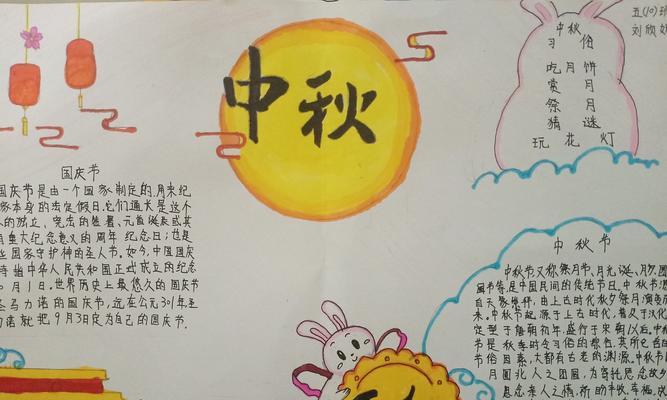 五(10)班
刘欣妍
中秋
中秋
习俗
吃月饼
赏月
祭月
猜谜
玩花灯
国庆节
国庆节是由一个国家制定的,用来纪
家本身的法定假日.它们通常是这个
人的独立、宪法的签署、元首诞辰或其
有重大纪念意义的周年纪念日;也是
些国家守护神的圣人节。如今,中国国庆
特指中华人民共和国正式成立的纪念
0月1日。世界历史上最悠久的国庆节
圣马力诺的国庆节,远在公元301年圣
力诺就把9月3日定为自己的国庆节.
中秋节
中秋节又称祭月节、月光诞、月夕、团
圆节等,是中国民间的传统节日。中秋节源
自天象崇拜,由上古时代秋夕祭月演变
来。中秋节起源于上古时代,普及于汉代
定型于唐朝初年,盛行于宋朝以后。中秋
节是秋季时令习俗的综合,其所包含的
节俗因素,大都有古老的渊源。中秋节以
月圆兆人之团圆,为寄托思念故乡
思念亲人之情,祈盼丰收、幸福,成